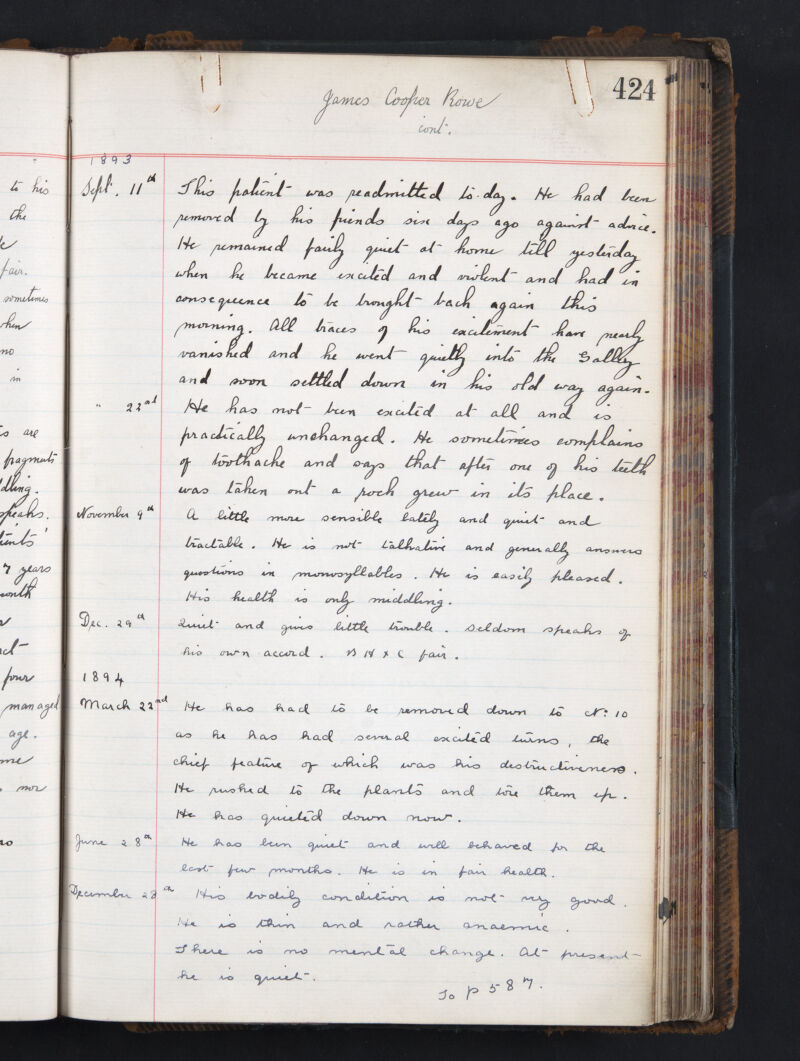 to his
the
fair.
sometimes
when
no
in
are
fragments
speaks.
7 years
month
four
managed
age.
424
James Cooper Rowe
cont.
1893
Sept. 11th This patient was readmitted to-day. He had been
removed by his friends six days ago against advice.
He remained fairly quiet at home till yesterday
when he became excited and violent and had in
consequence to be brought back again this
morning. All traces of his excitement have nearly
vanished and he went quietly into the Gallery
and soon settled down in his old way again.
" 22nd He has not been excited at all and is
practically unchanged. He sometimes complains
of toothache and says that after one of his teeth
was taken out a rock grew in its place.
November 9th A little more sensible lately and quiet and
tractable. He is not talkative and generally answers
questions in monosyllables. He is easily pleased.
His health is only middling.
Dec. 29th Quiet and gives little trouble. Seldom speaks of
his own accord. B H & C fair.
1894
March 22nd He has had to be removed down to No: 10
as he has had several excited turns, the
chief feature of which was his destructiveness.
He rushed to the plants and tore them up.
He has quieted down now.
June 28th He has been quiet and well behaved for the
last few months. He is in fair health.
December 28th His bodily condition is not very good.
He is thin and rather anaemic.
There is no mental change. At present
he is quiet.
To p 587.